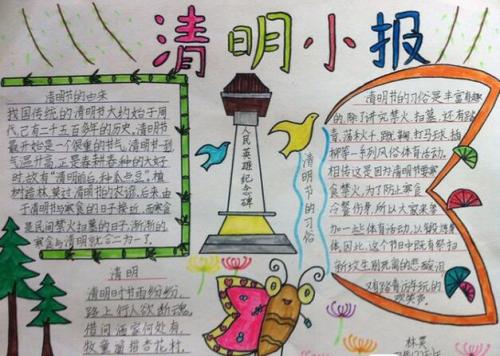 清明小报
清明节的由来
我国传统的清明节大约始于周
代,已有二千五百多年的历史,清明节
最开始是一个很重的节气,清明一到,
气温升高,正是春耕春种的大好
时,故有“清明前后,种瓜点豆”。植
树造林莫过清明的农谚。后来,由
于清明节与寒食的日子接近,而寒食
是民间禁火扫墓的日子,渐渐的,
寒食与清明就合二为一了。
人民英雄纪念碑
清明节的习俗
清明节的习俗是丰富有趣
的,除了讲究禁火、扫墓,还有踏
青、荡秋千、蹴鞠、打马球、插
柳等一系列风俗体育活动。
相传这是因为清明节要寒
食禁火,为了防止寒食
冷餐伤身,所以大家来参
加一些体育活动,以锻炼身
体。因此,这个节日中既有祭扫
新坟生别死离的悲酸泪,
又有踏青游玩的
欢笑声。
清明
清明时节雨纷纷,
路上行人欲断魂。
借问酒家何处有,
牧童遥指杏花村。